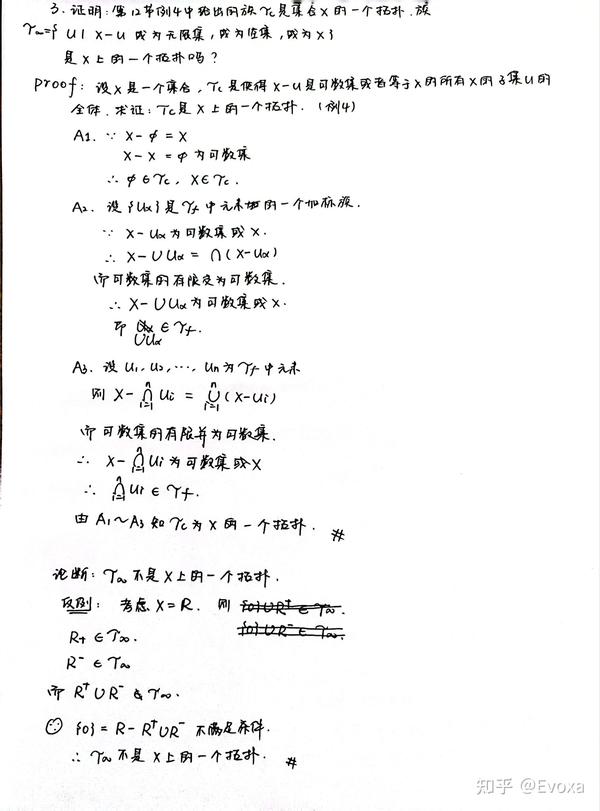 3. 证明：第12节例4中给出的族 τc 是集合 X 的一个拓扑. 族
τ∞={ U | X-U 或为无限集，或为空集，或为X }
是X上的一个拓扑吗？
Proof: 设X是一个集合，τc是使得 X-U是可数集或者等于X的所有X的子集U的
全体. 求证：τc是X上的一个拓扑. (例4)
A1. ∵ X-ϕ = X
X-X = ϕ 为可数集
∴ ϕ∈τc, X∈τc.
A2. 设{Uα}是τf中元素的一个加标族.
∵ X-Uα为可数集或X.
∴ X-∪Uα = ∩(X-Uα)
而可数集的有限交为可数集.
∴ X-∪Uα为可数集或X.
即 ∪Uα ∈ τf.
A3. 设 U1, U2, ⋯, Un 为τf中元素
则 X-⋂ⁿᵢ₌₁ Ui = ⋃ⁿᵢ₌₁ (X-Ui)
而可数集的有限并为可数集.
∴ X-⋂ⁿᵢ₌₁ Ui为可数集或X
∴ ⋂ⁿᵢ₌₁ Ui ∈ τf.
由A1~A3知τc为X的一个拓扑. #
论断：τ∞不是X上的一个拓扑.
反例： 考虑 X=R. 则 {0}∪R⁺∈τ∞.
{0}∪R⁻∈τ∞.
R+ ∈ τ∞.
R⁻ ∈ τ∞
而 R⁺∪R⁻ ∉ τ∞.
{0} = R-R⁺∪R⁻ 不满足条件.
∴ τ∞不是X上的一个拓扑. #
知乎 @Evoxa